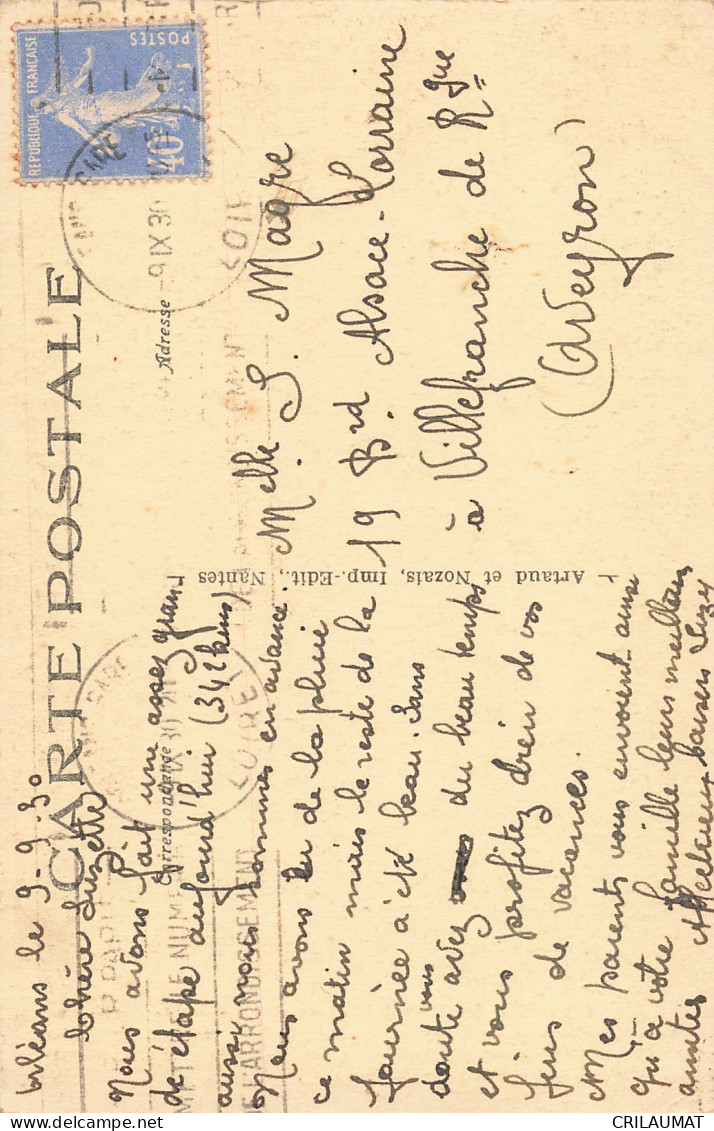 CARTE POSTALE
Correspondance
Adresse
Artaud et Nozais, Imp.-Edit., Nantes
REPUBLIQUE FRANÇAISE
POSTES
40c
GARE
-9 IX 30
LOIRET
GARE
IX 30
LOIRET
METTRE LE NUMERO
DE L'ARRONDISSEMENT
Orléans le 9-9-30
Chère Suzette
Nous avons fait une assez grande
de étape aujourd'hui (342 kms)
aussi nous sommes en avance.
Nous avons eu de la pluie
ce matin mais le reste de la
journée a été beau. Sans
doute vous avez du beau temps
et vous profitez bien de vos
fins de vacances.
Mes parents vous envoient ainsi
qu'à votre famille leurs meilleures
amitiés Affectueux baisers Suzy
Melle S. Magre
19 Brd Alsace-Lorraine
à Villefranche de Rgue
(Aveyron)
CRILAUMAT